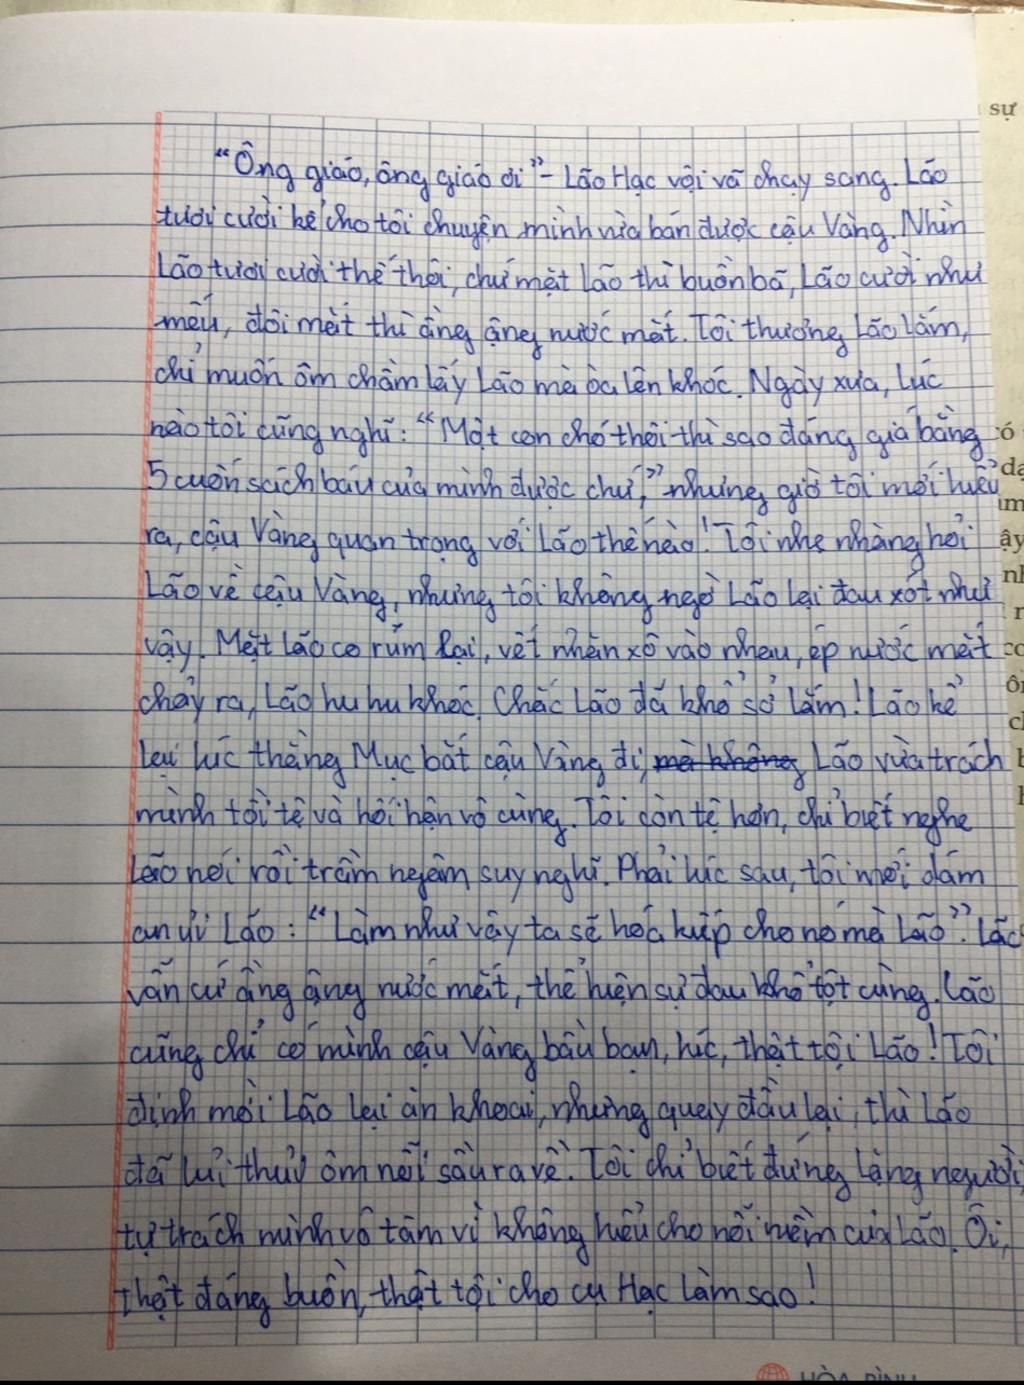 "Ông giáo, ông giáo ơi" - Lão Hạc vội vã chạy sang. Lão
tươi cười kể cho tôi chuyện mình vừa bán được cậu Vàng. Nhìn
Lão tươi cười thế thôi, chứ mặt Lão thì buồn bã, Lão cười như
mếu, đôi mắt thì ầng ậng nước mắt. Tôi thương Lão lắm,
chỉ muốn ôm chầm lấy Lão mà òa lên khóc. Ngày xưa, lúc
nào tôi cũng nghĩ: "Một con chó thôi thì sao đáng giá bằng
5 cuốn sách báu của mình được chứ," nhưng giờ tôi mới hiểu
ra, cậu Vàng quan trọng với Lão thế nào! Tôi nhẹ nhàng hỏi
Lão về cậu Vàng, nhưng tôi không ngờ Lão lại đau xót như
vậy. Mặt lão co rúm lại, vết nhăn xô vào nhau, ép nước mắt
chảy ra, Lão hu hu khóc. Chắc Lão đã khổ sở lắm! Lão kể
lại lúc thằng Mục bắt cậu Vàng đi, mà không Lão vừa trách
mình tồi tệ và hối hận vô cùng. Tôi còn tệ hơn, chỉ biết nghe
Lão nói rồi trầm ngâm suy nghĩ. Phải lúc sau, tôi mới dám
an ủi Lão: "Làm như vậy ta sẽ hoá kiếp cho nó mà Lão". Lão
vẫn cứ ầng ậng nước mắt, thể hiện sự đau khổ tột cùng. Lão
cũng chỉ có mình cậu Vàng bầu bạn, híc, thật tội Lão! Tôi
định mời Lão lại ăn khoai, nhưng quay đầu lại, thì Lão
đã lủi thủi ôm nỗi sầu ra về. Tôi chỉ biết đứng lặng người,
tự trách mình vô tâm vì không hiểu cho nỗi niềm của Lão. Ôi,
thật đáng buồn, thật tội cho cụ Hạc làm sao!
sự
HÒA BÌNH